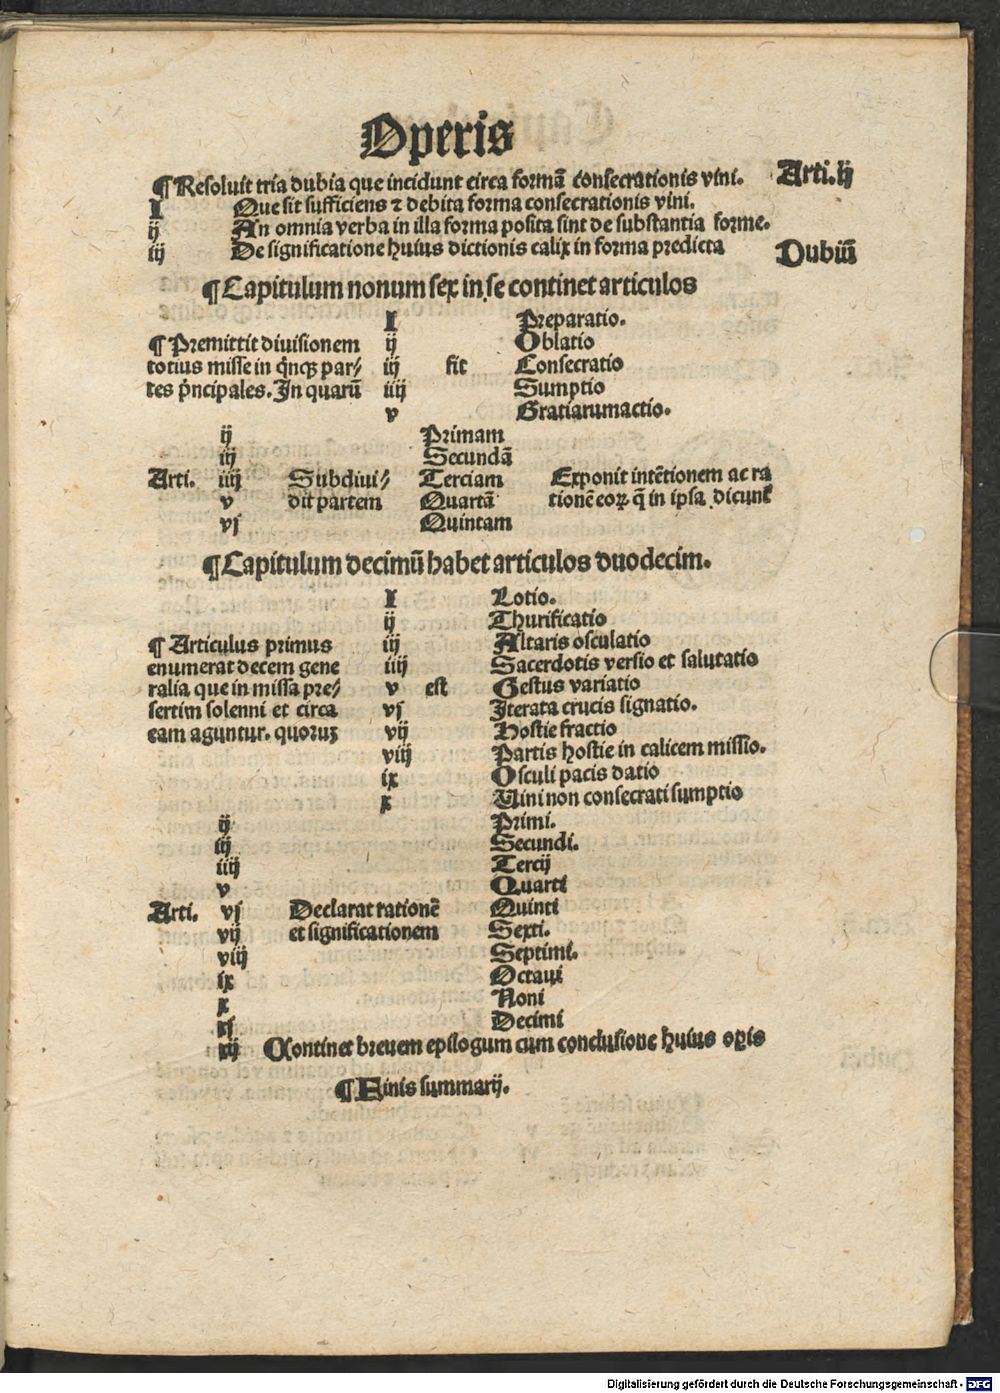 Operis
¶ Resoluit tria dubia que incidunt circa formã consecrationis vini. Arti. ij
I Que sit sufficiens ⁊ debita forma consecrationis vini.
ij An omnia verba in illa forma posita sint de substantia forme.
iij De significatione huius dictionis calix in forma predicta Dubiũ
¶ Capitulum nonum sex in se continet articulos
I Preparatio.
¶ Premittit diuisionem ij Oblatio
totius misse in q̇nqꝫ par⸗ iij sit Consecratio
tes p̃ncipales. In quarũ iiij Sumptio
v Gratiarumactio.
ij Primam
iij Secundã
Arti. iiij Subdiui⸗ Terciam Exponit intẽtionem ac ra
v dit partem Quartã tionẽ eoꝝ q̃ in ipsa dicunt᷑
vj Quintam
¶ Capitulum decimũ habet articulos duodecim.
I Lotio.
ij Thurificatio
¶ Articulus primus iij Altaris osculatio
enumerat decem gene iiij Sacerdotis versio et salutatio
ralia que in missa pre⸗ v est Gestus variatio
sertim solenni et circa vj Iterata crucis signatio.
eam aguntur. quoruꝫ vij Hostie fractio
viij Partis hostie in calicem missio.
ix Osculi pacis datio
x Uini non consecrati sumptio
ij Primi.
iij Secundi.
iiij Tercij
v Quarti
Arti. vj Declarat rationẽ Quinti
vij et significationem Sexti.
viij Septimi.
ix Octaui
x Noni
xj Decimi
xij Continet breuem epilogum cum conclusione huius oꝑis
¶ Finis summarij.
Digitalisierung gefördert durch die Deutsche Forschungsgemeinschaft - DFG